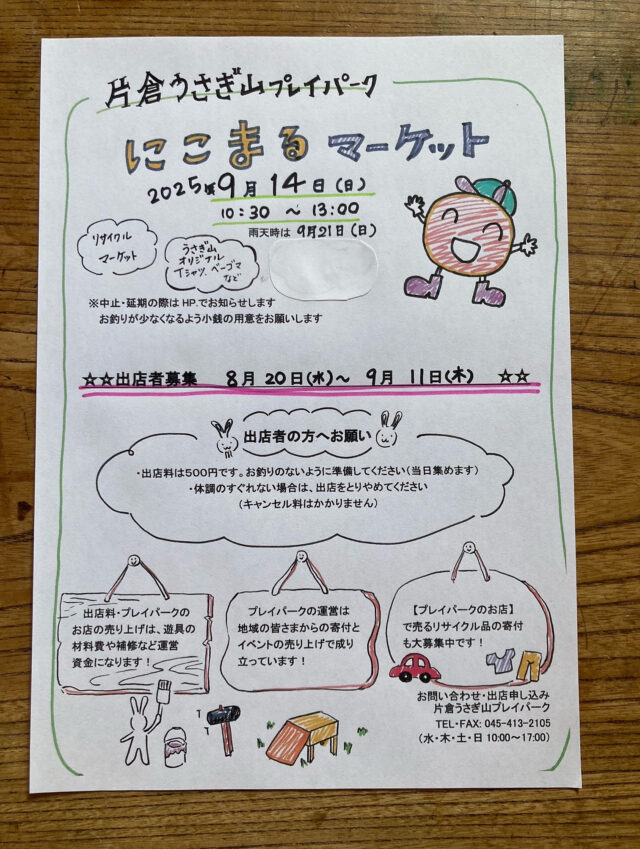 片倉うさぎ山プレイパーク
にこまるマーケット
2025年9月14日(日)
10:30 ～ 13:00
雨天時は 9月21日(日)
リサイクル
マーケット
うさぎ山
オリジナル
Tシャツ、ベーゴマ
など
※中止・延期の際は HP.でお知らせします
お釣りが少なくなるよう小銭の用意をお願いします
☆☆出店者募集 8月20日(水)～ 9月11日(木) ☆☆
出店者の方へお願い
・出店料は500円です。お釣りのないように準備してください(当日集めます)
・体調のすぐれない場合は、出店をとりやめてください
(キャンセル料はかかりません)
出店料・プレイパークの
お店の売り上げは、遊具の
材料費や補修など運営
資金になります！
プレイパークの運営は
地域の皆さまからの寄付と
イベントの売り上げで成り
立っています！
【プレイパークのお店】
で売るリサイクル品の寄付
も大募集中です！
お問い合わせ・出店申し込み
片倉うさぎ山プレイパーク
TEL・FAX: 045-413-2105
(水・木・土・日 10:00～17:00)